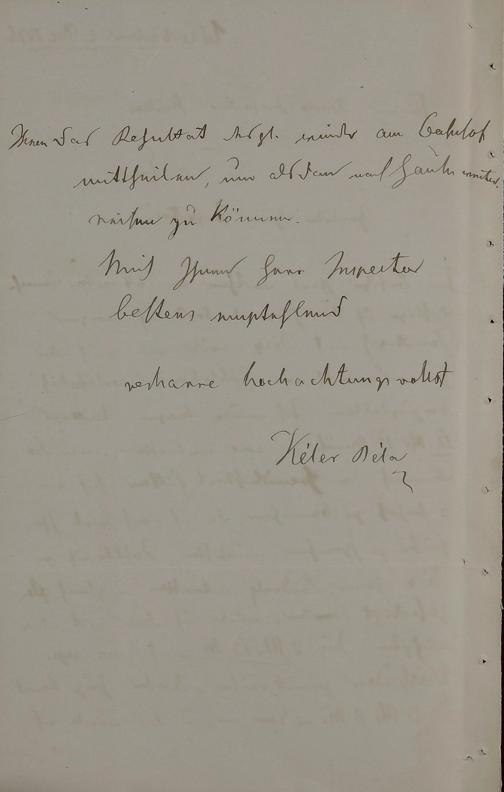 Ihnen das Resultat dergl. wieder am Bahnhof
mittheilen, um alsdann nach Hause weiter
reisen zu können.
Mich Ihnen Herr Inspector
bestens empfehlend
verharre hochachtungsvollst
Kéler Béla